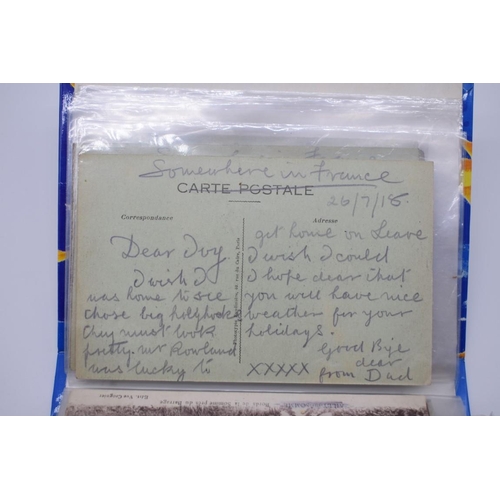 Somewhere in France
CARTE POSTALE
26/7/18.
Correspondance
Adresse
Dear Ivy.
I wish I
was home to see
those big hollyhocks
they must look
pretty. Mr Rowland
was lucky to
get home on Leave
I wish I could
I hope dear that
you will have nice
weather for your
holidays.
Good Bye
dear
from Dad
XXXXX